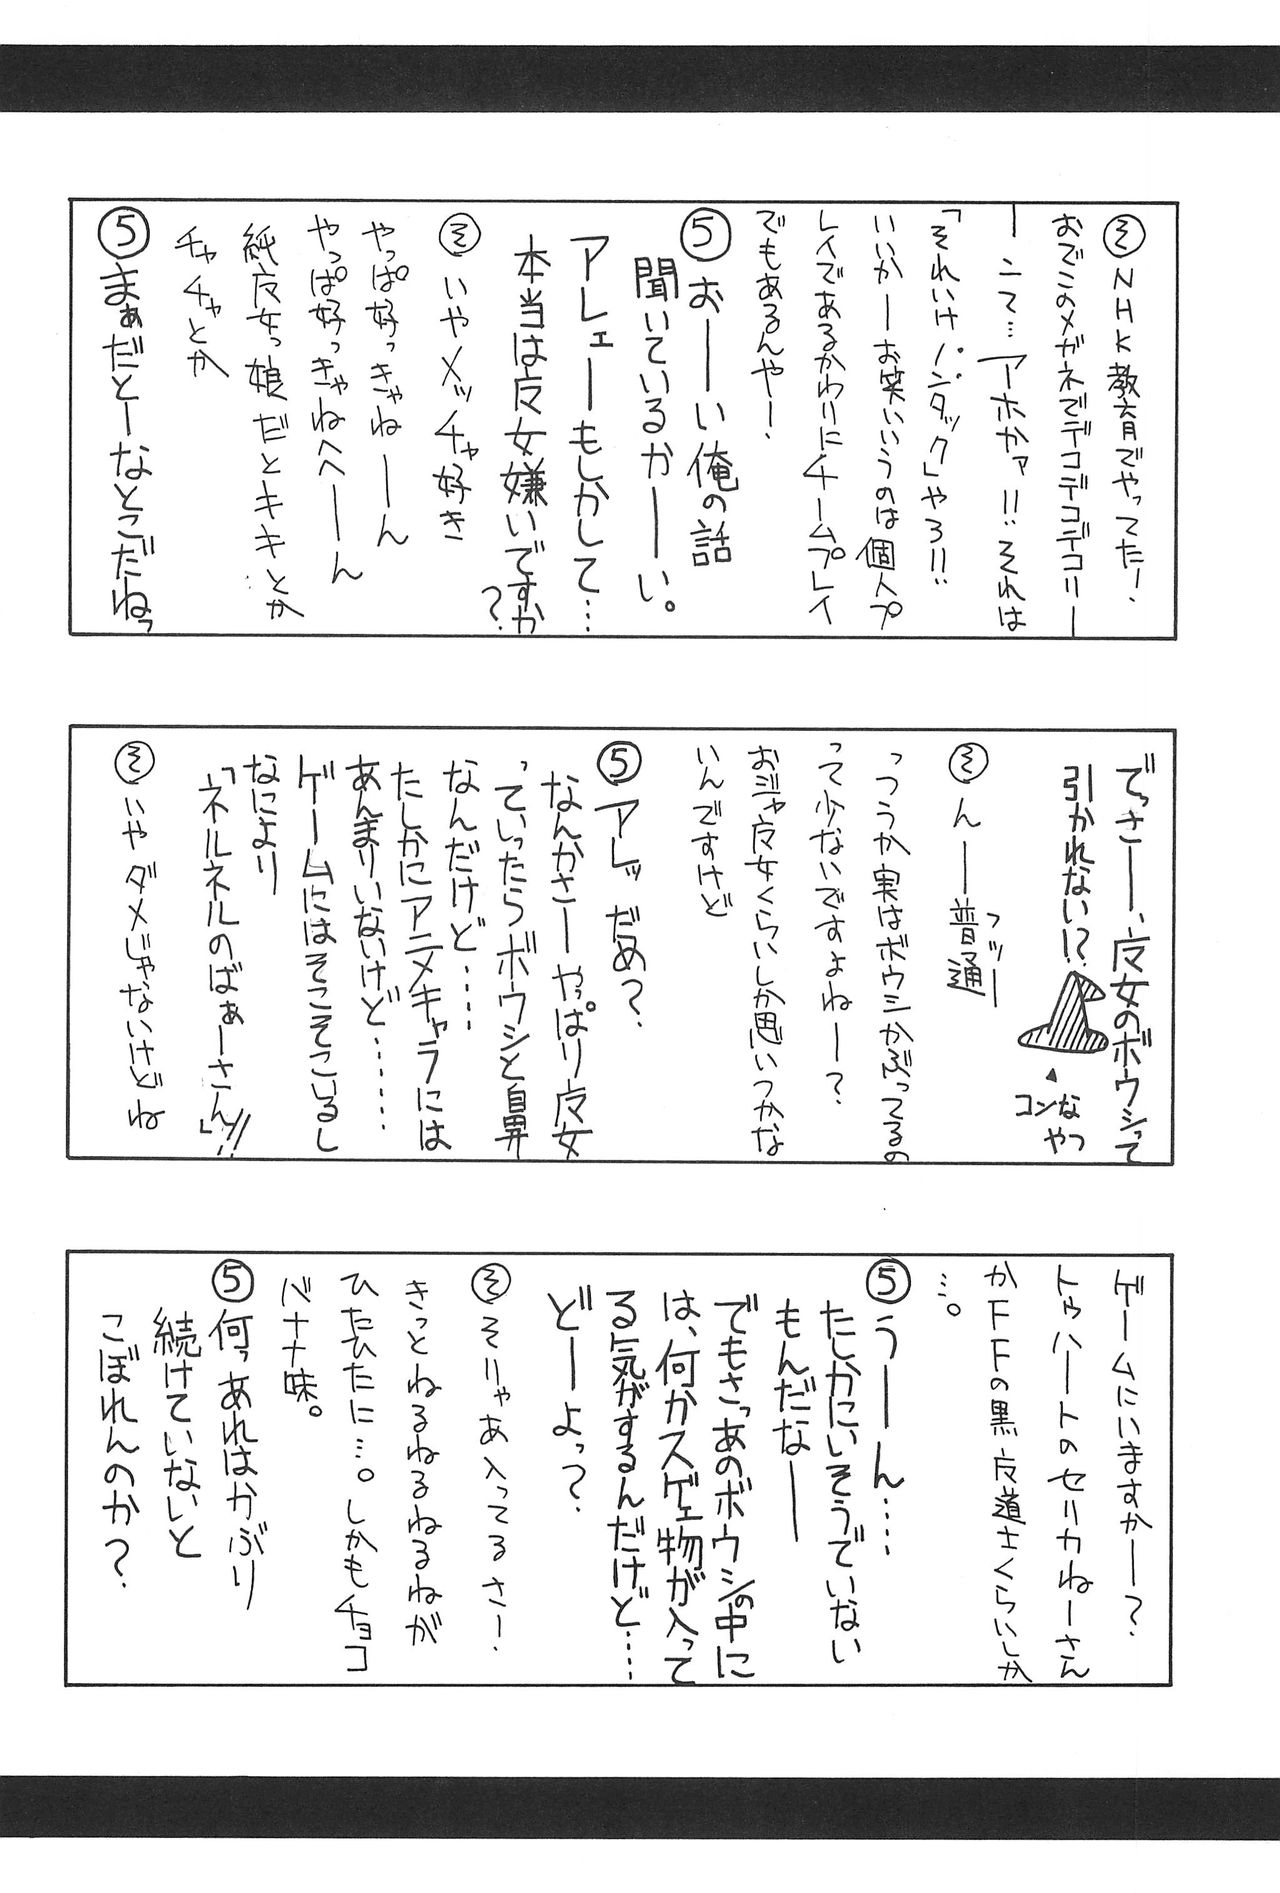 そ NHK教育でやってた!
おでこのメガネでデコデコデコリー
ーンて…アーホかァ!!それは
「それいけノンタック」やろ!!
いいかーお笑いいうのは個人プ
レイであるかわりにチームプレイ
でもあるんやー!
5 おーい俺の話
聞いているかーい。
アレェーもしかして…
本当は魔女嫌いですか?
そ いやメッチャ好き
やっぱ好っきゃねーん
やっぱ好っきゃねへーん
純魔女っ娘だとキキとか
チャチャとか
5 まぁだとーなとこだねっ
でっさー、魔女のボウシって
引かれない!?
コンな
やつ
そ んーー普通
フツー
っつうか実はボウシかぶってるの
って少ないですよねー?
おジャ魔女くらいしか思いつかな
いんですけど
5 アレッだめ?
なんかさーやっぱり魔女
っていったらボウシと鼻
なんだけど……
たしかにアニメキャラには
あんまりいないけど……
ゲームにはそこそこいるし
なにより
「ネルネルのばぁーさん」!!
そ いやダメじゃないけどね
ゲームにいますかー?
トゥハートのセリカねーさん
かFFの黒魔道士くらいしか
…。
5 うーーん……
たしかにいそうでいない
もんだなーー
でもさっあのボウシの中に
は、何かスゲェ物が入って
る気がするんだけど……
どーよっ?
そ そりゃあ入ってるさー!
きっとねるねるねるねが
ひたひたに…。しかもチョコ
バナナ味。
5 何っあれはかぶり
続けていないと
こぼれんのか?